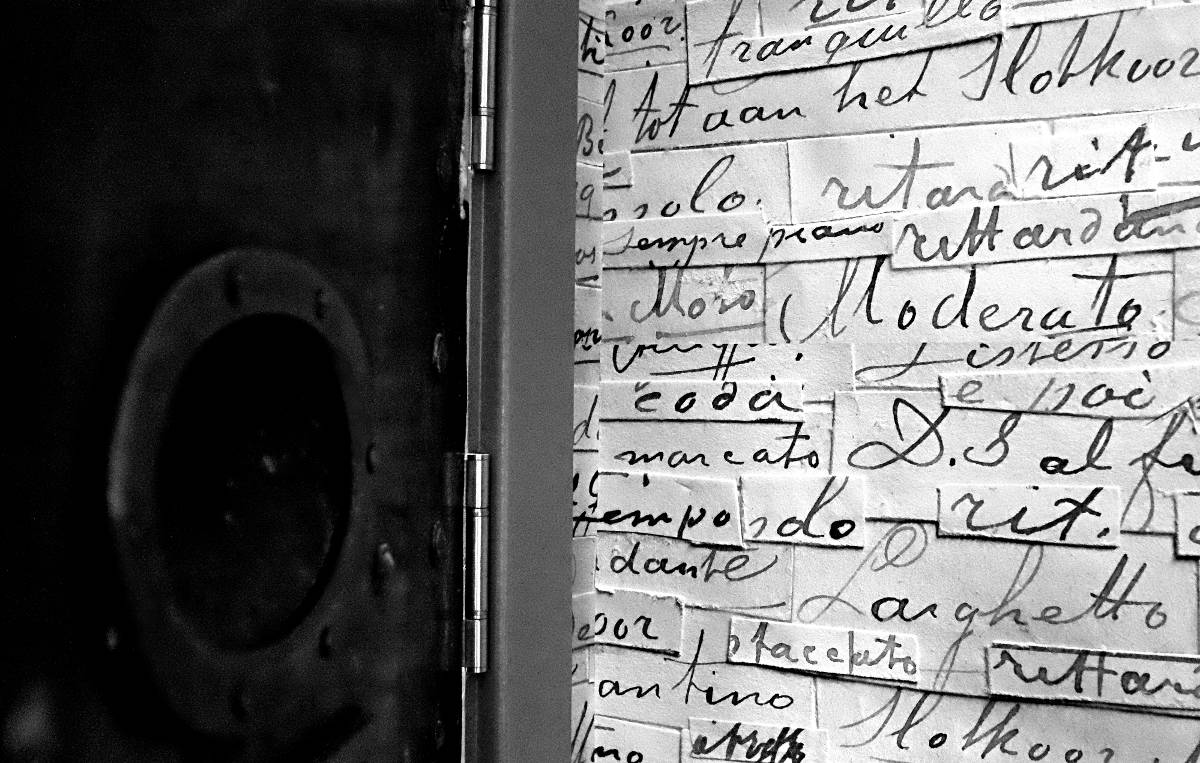 tranquillo
tot aan het Slotkoor
solo. ritard rit-
sempre piano rittardan
Moso Moderato
Listesso
coda e poi
marcato D.S al fi
tempo solo rit.
dante Larghetto
staccato rittar
antino
Slotkoor